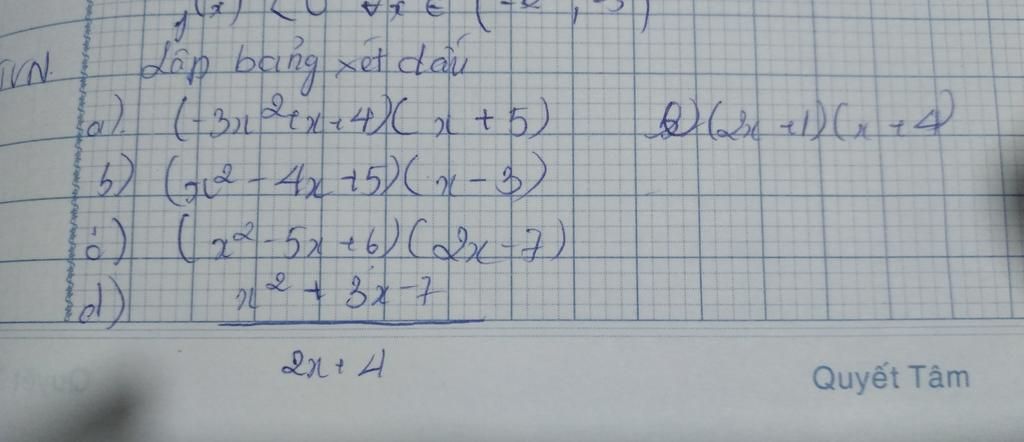 y(x) < 0 ∀x ∈ (-2, -3)
TVN. Lập bảng xét dấu
a). (-3x²+x+4)(x+5) e) (2x+1)(x+4)
b) (x²-4x+5)(x-3)
c) (x²-5x+6)(2x-7)
d) x²+3x-7
2x+4
Quyết Tâm